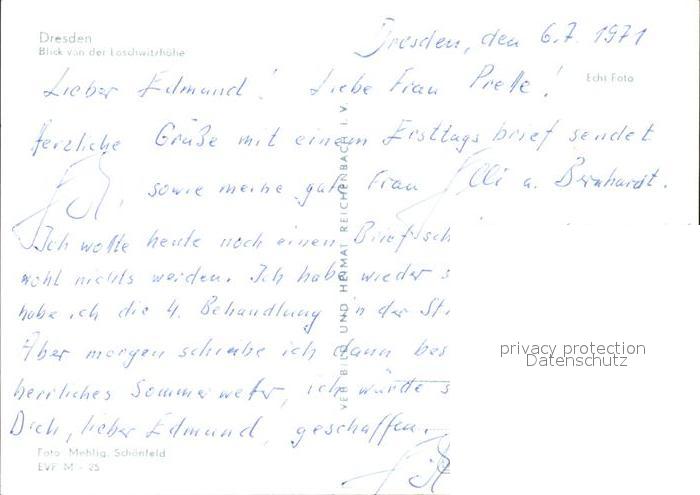 Dresden
Blick von der Loschwitzhöhe
Dresden, den 6.7.1971
Echt Foto
Lieber Edmund! Liebe Frau Prelle!
Herzliche Grüße mit einem Ersttagsbrief sendet
sowie meine gute Frau Elli u. Bernhardt.
Ich wollte heute noch einen Brief sch
wohl nichts werden. Ich habe wieder s
habe ich die 4. Behandlung in der St.
Aber morgen schreibe ich dann bes
herrliches Sommerwetter, ich würde s
Dich, lieber Edmund, geschaffen.
VEB BILD UND HEIMAT REICHENBACH I. V.
privacy protection
Datenschutz
Foto Mehlig, Schönfeld
EVP M -.25